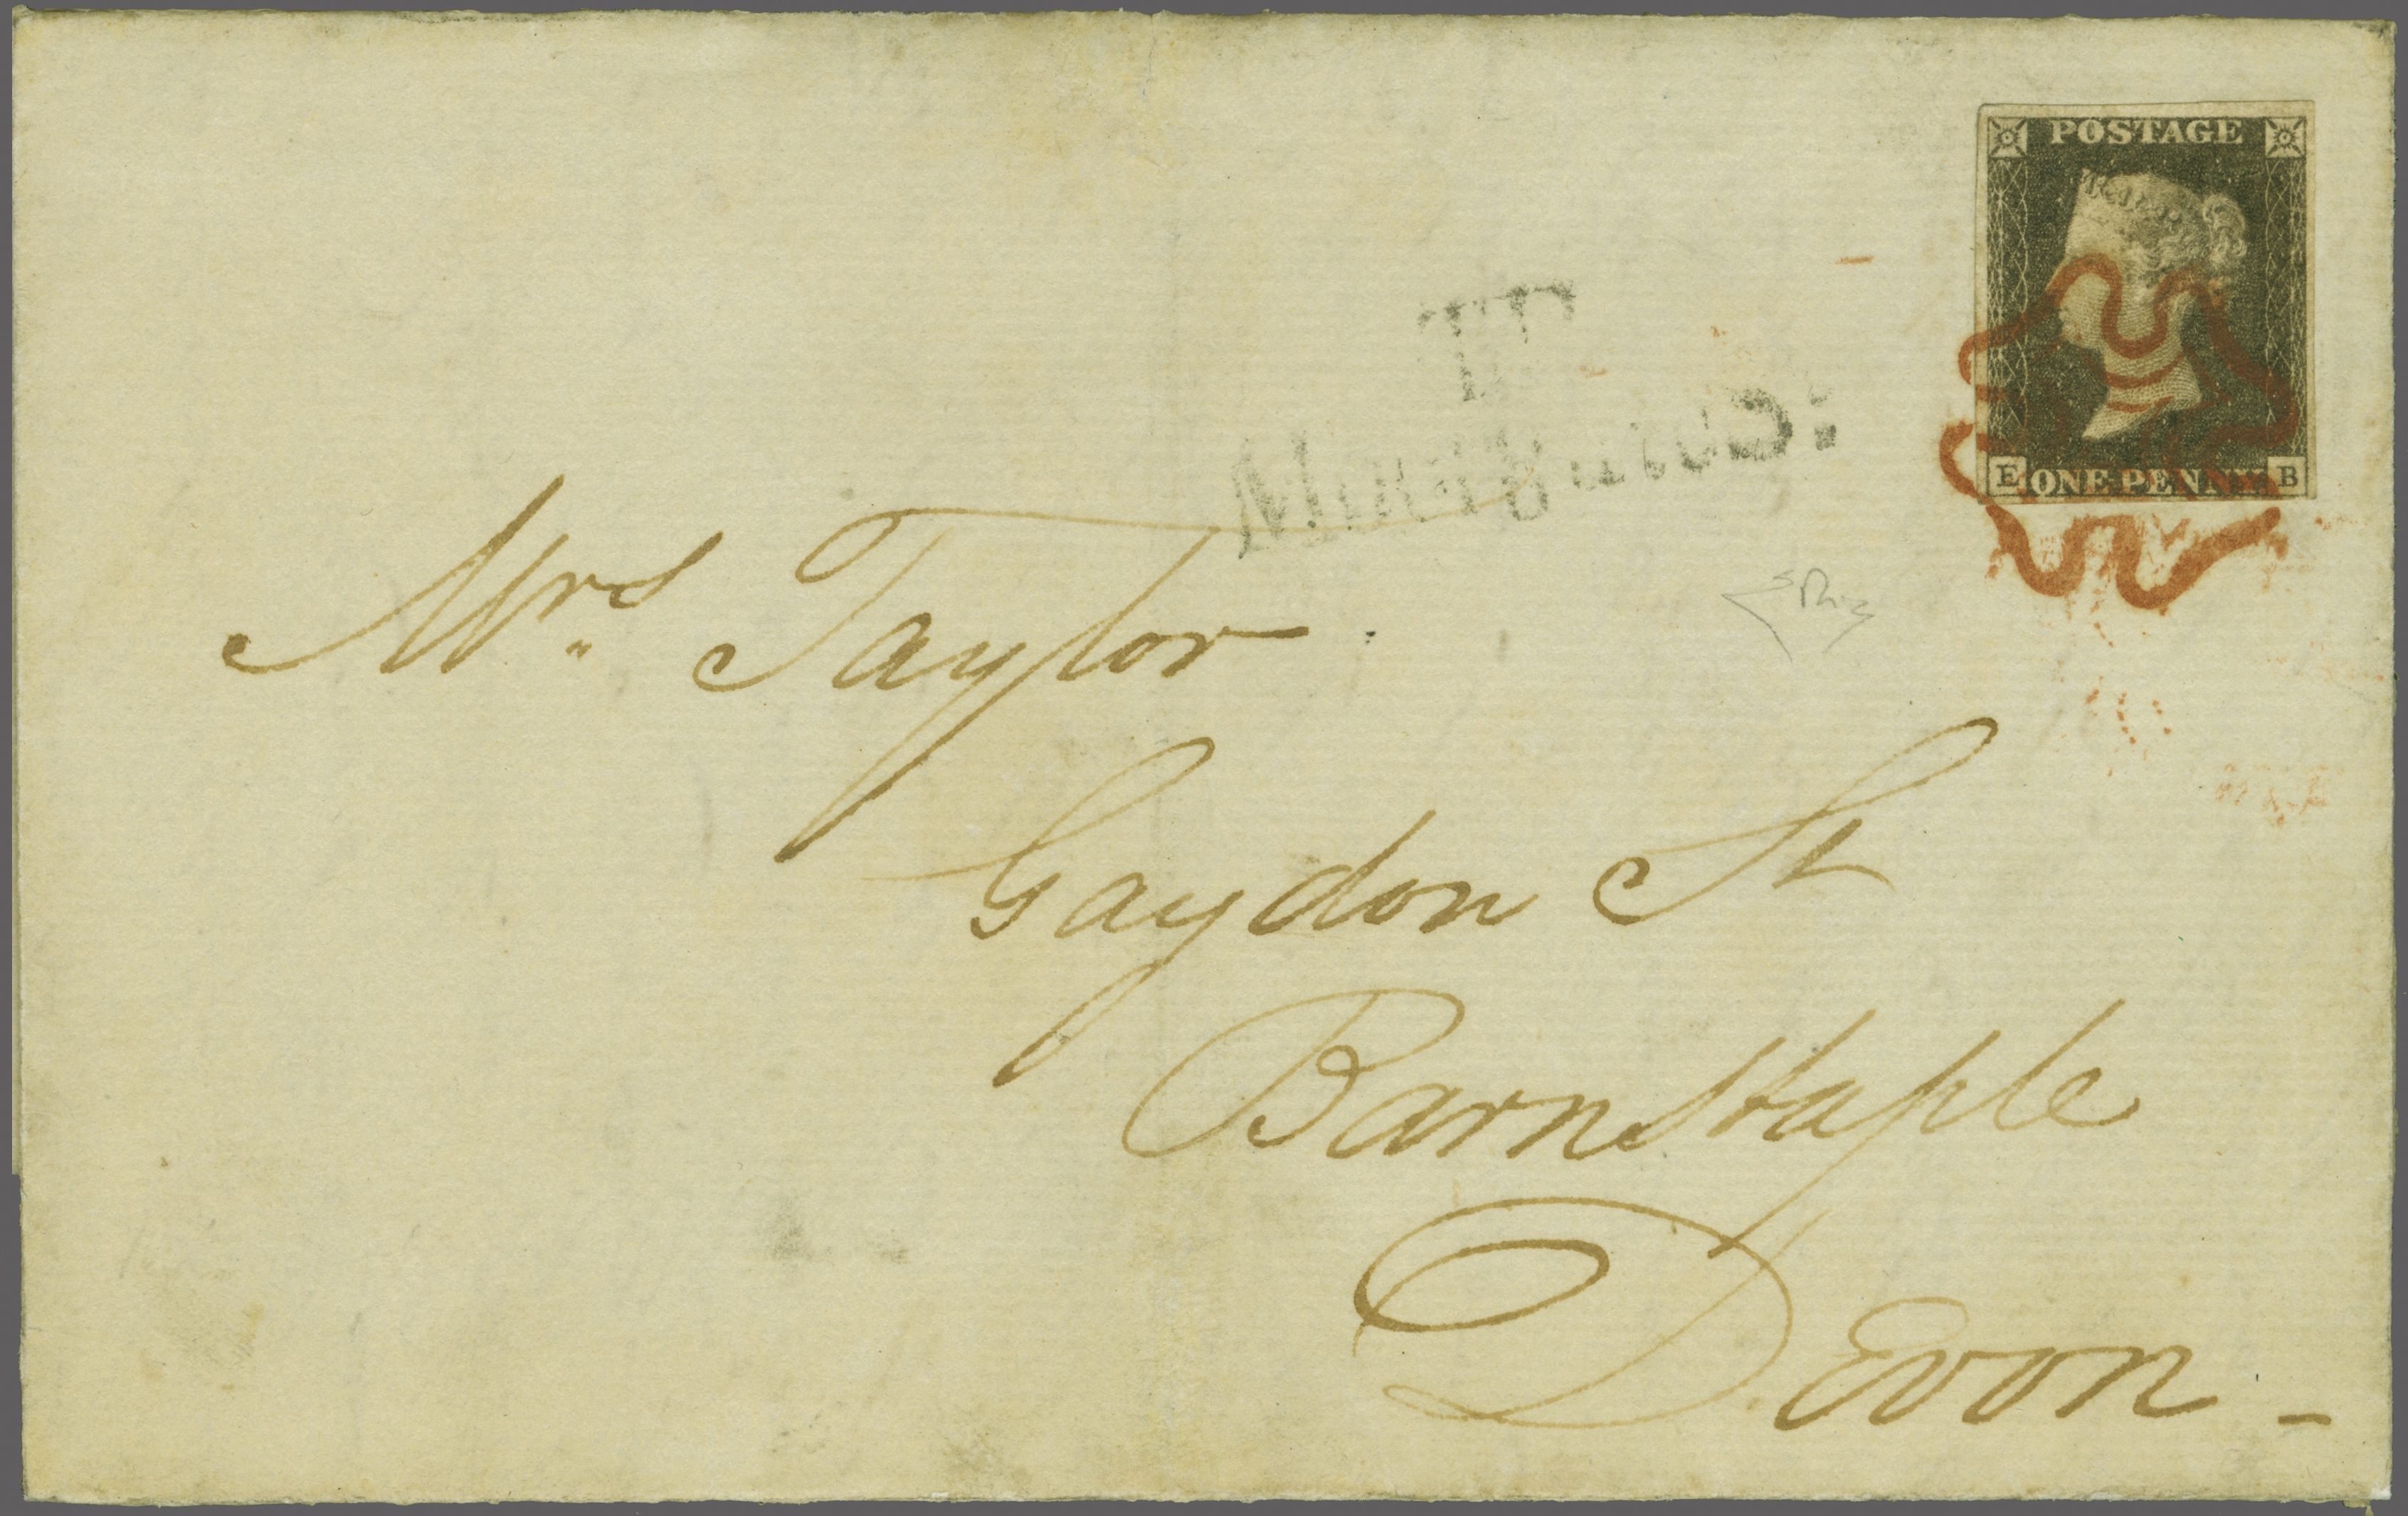 POSTAGE
E ONE PENNY B
T
Mrs Taylor
Gaydon St
Barnstaple
Devon